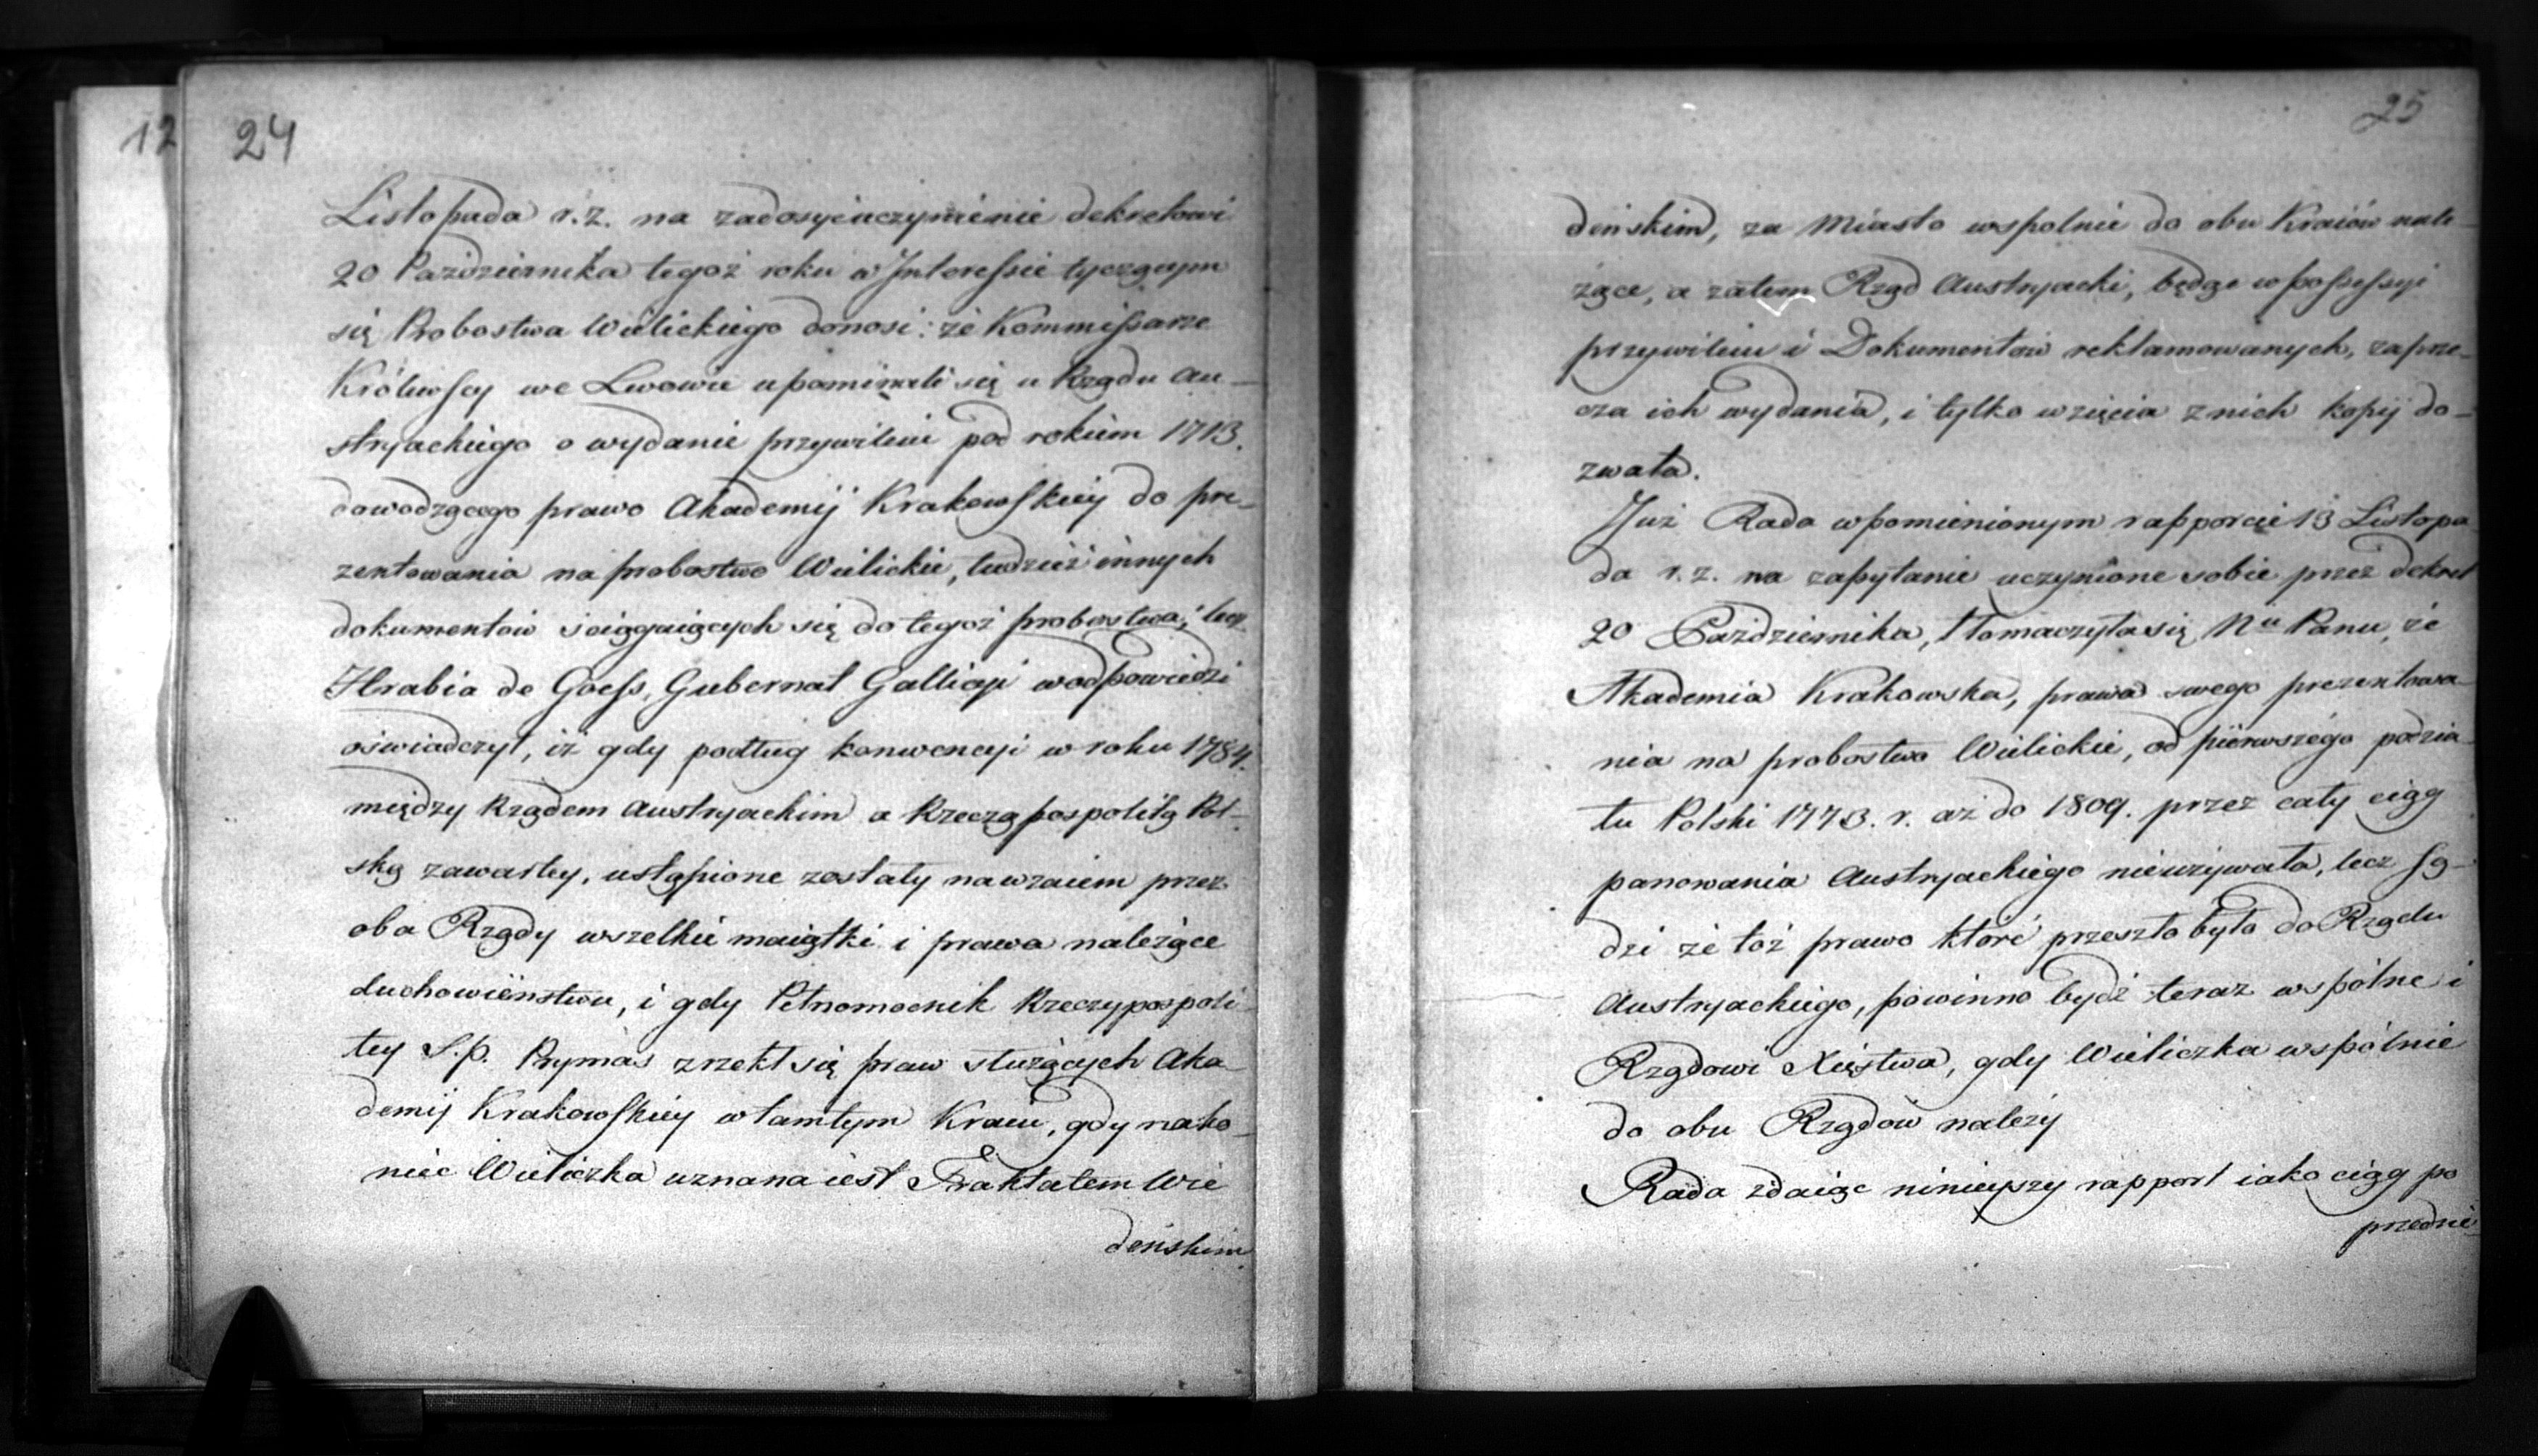 12
24
Listopada r. z. na zadosyćuczynienie dekretowi
20 Pażdziernika tegoż roku w Interessie tyczącym
się Probostwa Wielickiego donosi: że Kommissarze
Królewscy we Lwowie upominali się u Rządu Au-
stryackiego o wydanie przywileiu pod rokiem 1713.
dowodzącego prawo Akademij Krakowskiey do pre-
zentowania na probostwo Wielickie, tudzież innych
dokumentów sciągaiących się do tegoż probostwa; lecz
Hrabia de Goess, Gubernat Gallicyi w odpowiedzi
oświadczył, iż gdy podług konwencyi w roku 1784.
między Rządem Austryackim a Rzecząpospolitą Pol-
ską zawartey, ustąpione zostały nawzaiem przez
oba Rządy wszelkie maiątki i prawa należące
duchowieństwu, i gdy Pełnomocnik Rzeczypospoli-
tey S. p. Prymas zrzekł się praw służących Aka-
demij Krakowskiey w tamtym Kraiu, gdy nako-
niec Wieliczka uznana iest Traktatem Wie
deńskim
25
deńskim, za Miasto wspolnie do obu Kraiów nale-
żące, a zatem Rząd Austryacki, będąc w possessyi
przywileiu i Dokumentów reklamowanych, zaprze-
cza ich wydania, i tylko wzięcia z nich kopij do-
zwala.
Już Rada w pomienionym rapporcie 13 Listopa
da r. z. na zapytanie uczynione sobie przez dekret
20 Października, tłomaczyła się Nu Panu, że
Akademia Krakowska, prawa swego prezentowa-
nia na probostwo Wielickie, od pierwszego podzia-
łu Polski 1773. r. aż do 1809. przez cały ciąg
panowania Austryackiego nieużywała, lecz są-
dzi że toż prawo które przeszło było do Rządu
Austryackiego, powinno bydź teraz wspólne i
Rządowi Xięstwa, gdy Wieliczka wspólnie
do obu Rządów należy
Rada zdaiąc ninieyszy rapport iako ciąg po
przednie